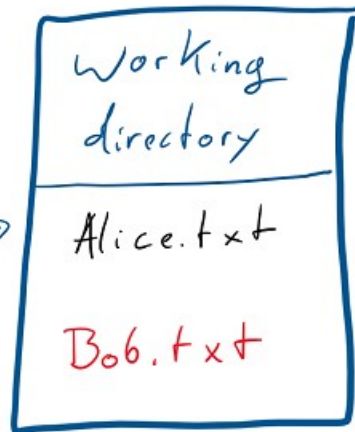 Working
directory
Alice.txt
Bob.txt